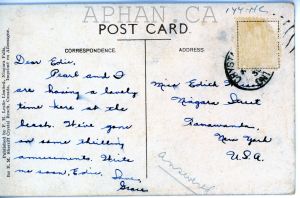 APHAN.CA
144-HC
POST CARD
CORRESPONDENCE.
ADDRESS
Dear Edie,
Pearl and I
are having a lovely
time here at the
beach. We've gone
on some thrilling
amusements. Write
me soon, Edie. Love,
Grace
Miss Edith
Niagara Street
Tonawanda,
New York
U.S.A.
answered
Published by F. H. Leslie, Limited, Niagara Falls,
Crystal Beach, Canada.